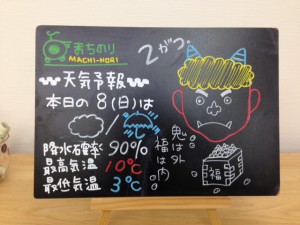 まちのり
MACHI-NORI
天気予報
本日の8(日)は
降水確率 90%
最高気温 10℃
最低気温 3℃
2がつ。
鬼は外
福は内
福